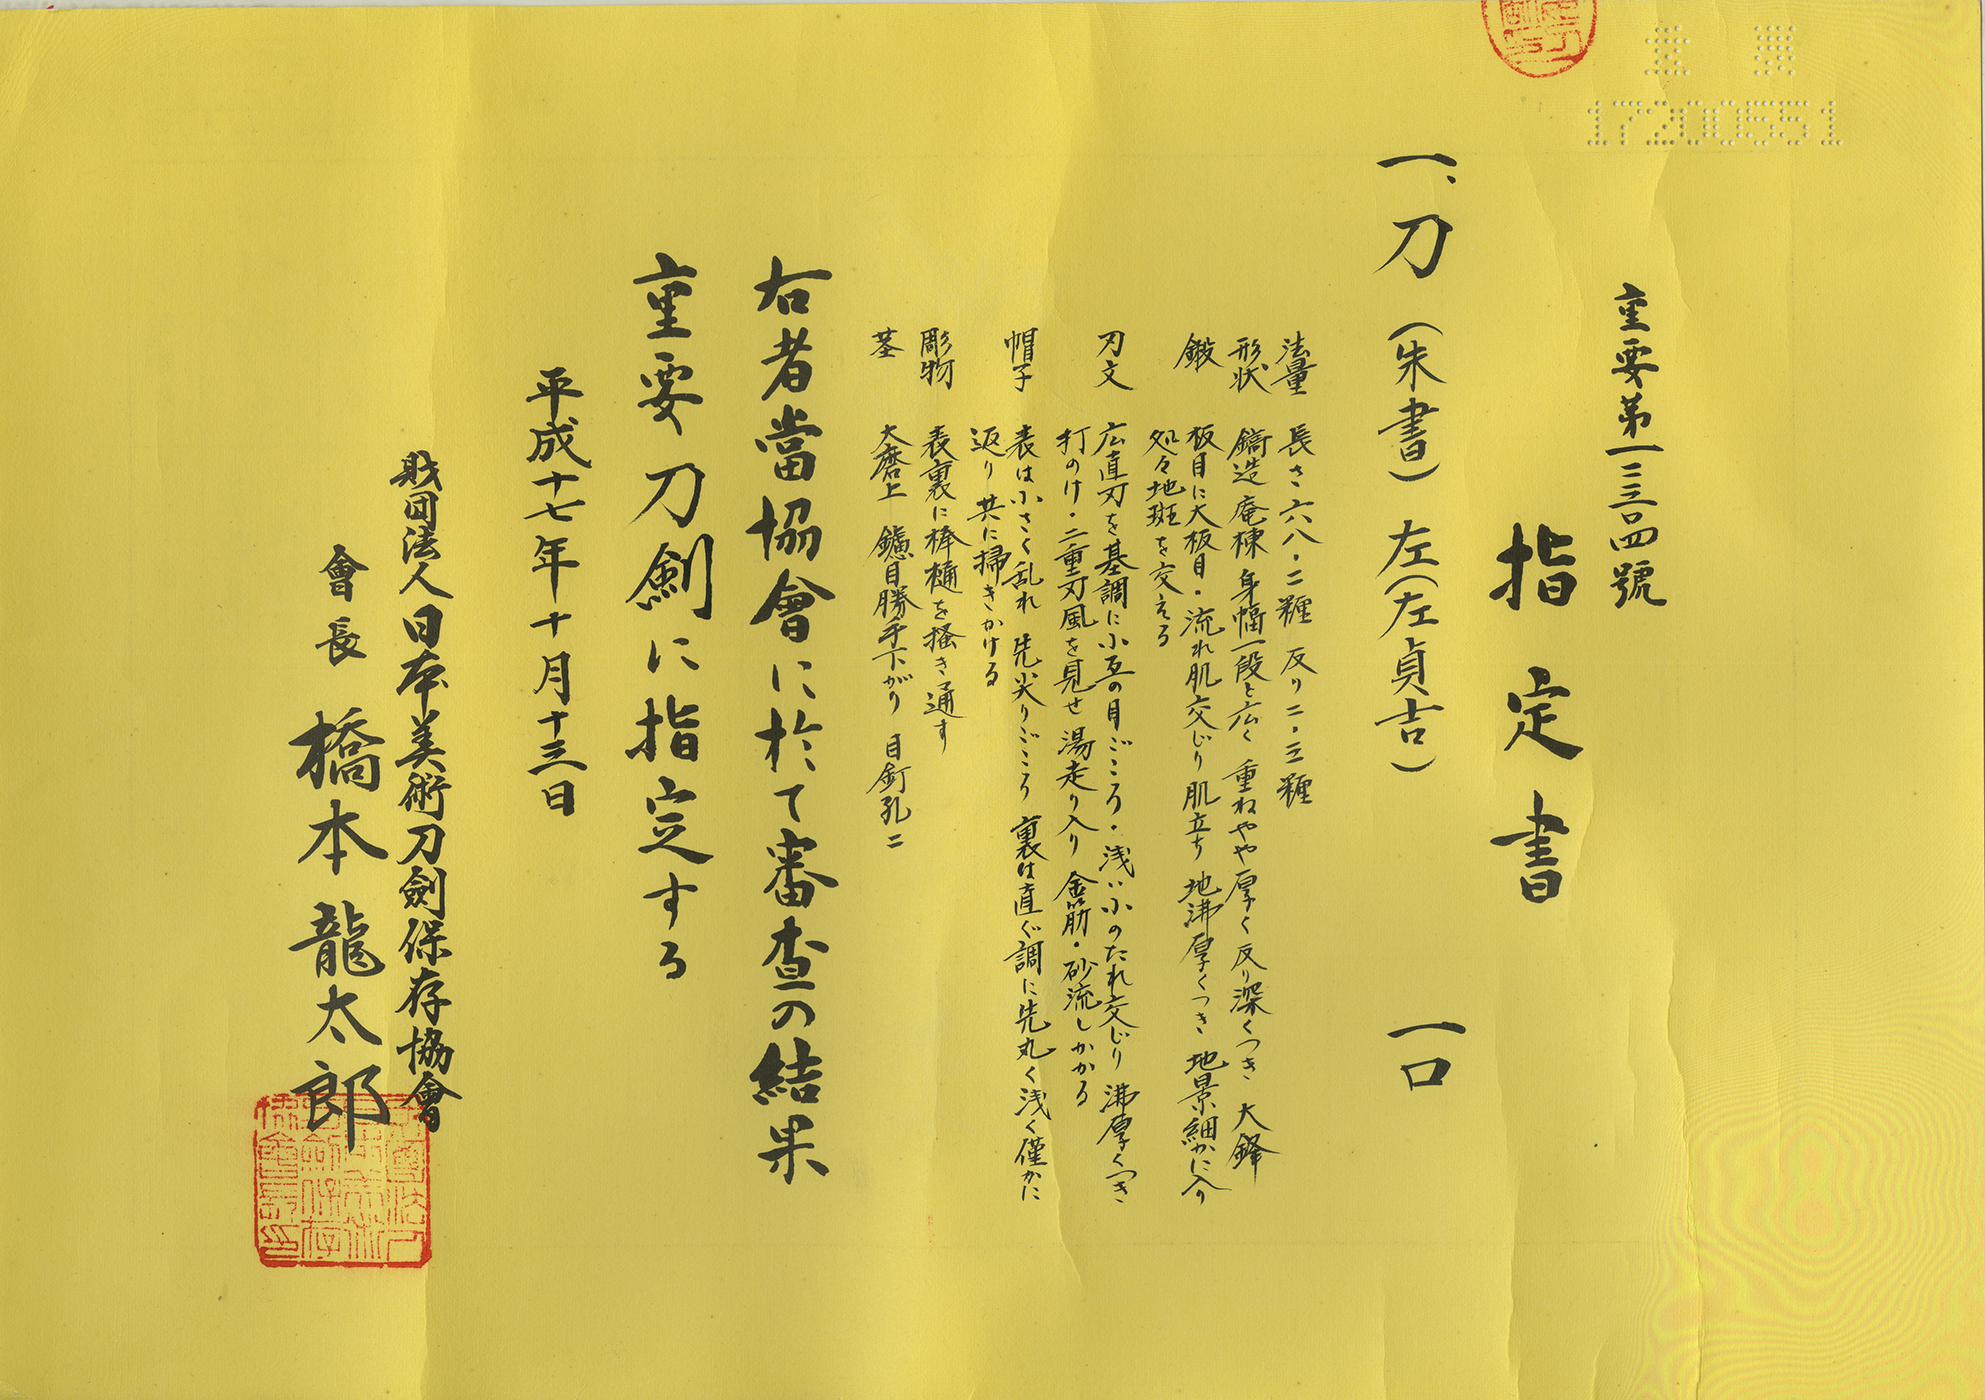 17200551
重要第一三二四號
指定書
一、刀（朱書）左（左貞吉） 一口
法量 長さ六八・二糎 反り二・三糎
形状 鎬造 庵棟 身幅一段と広く 重ねやや厚く 反り深くつき 大鋒
鍛 板目に大板目・流れ肌交じり 肌立ち 地沸厚くつき 地景細かに入り
処々地斑を交える
刃文 広直刃を基調に小互の目ごころ・浅い小のたれ交じり 沸厚くつき
打のけ・二重刃風を見せ 湯走り入り 金筋・砂流しかかる
帽子 表は小さく乱れ 先尖りごころ 裏は直ぐ調に先丸く浅く僅かに
返り 共に掃きかける
彫物 表裏に棒樋を掻き通す
茎 大磨上 鑢目勝手下がり 目釘孔二
右者當協會に於て審査の結果
重要刀劍に指定する
平成十七年十月十三日
財団法人日本美術刀劍保存協會
會長 橋本龍太郎